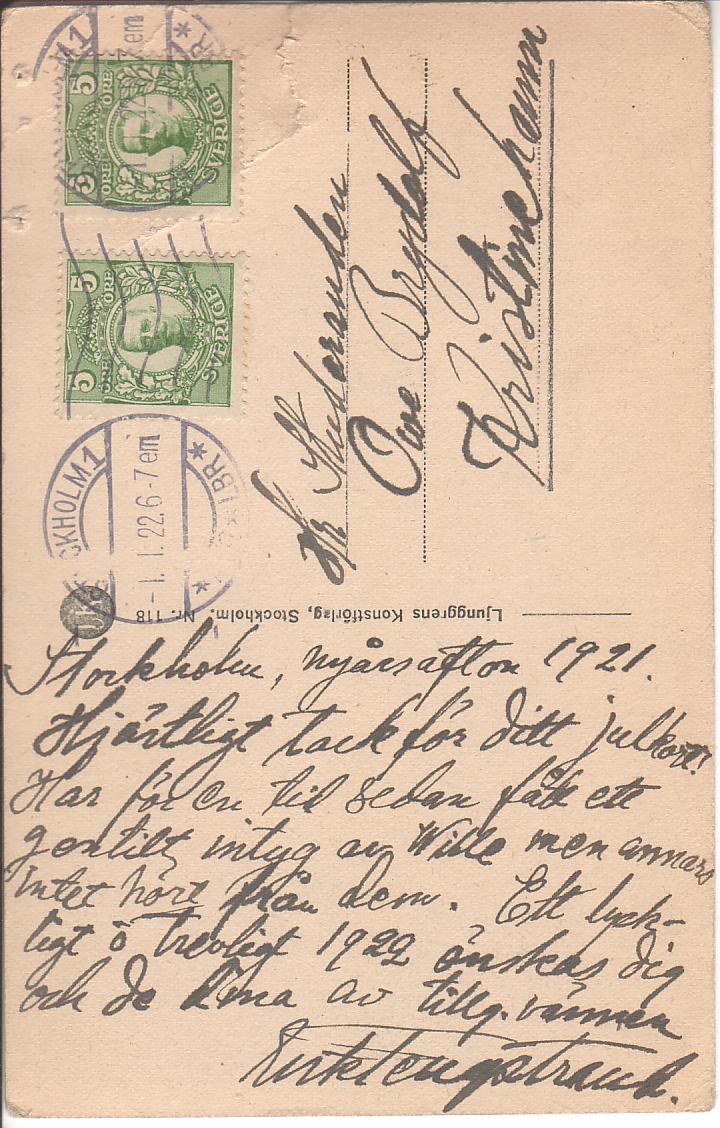 5 ÖRE
5 ÖRE
SVERIGE
5 ÖRE
5 ÖRE
SVERIGE
STOCKHOLM 1
-1.1.22.6-7 em
* LBR *
Hr Studeranden
Owe Brydolf
Kristinehamn
Ljunggrens Konstförlag, Stockholm. Nr. 118
Stockholm, nyårsafton 1921.
Hjärtligt tack för ditt julkort!
Har för en tid sedan fått ett
gentilt intyg av Wille men annars
intet hört från dem. Ett lyck-
ligt o trevligt 1922 önskas dig
och de dina av tillg. vännen
Erik Tengstrand.